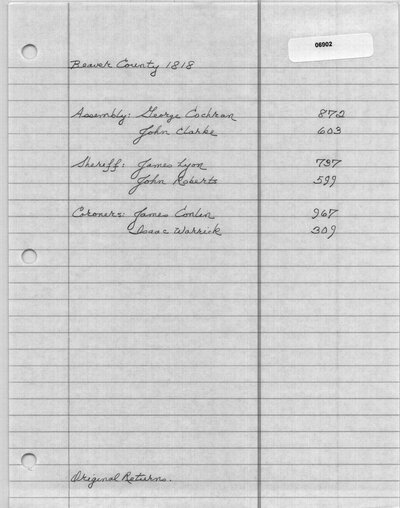 06902
Beaver County 1818
Assembly: George Cochran 872
John Clarke 603
Sheriff: James Lyon 737
John Roberts 599
Coroners: James Conlen 967
Isaac Warrick 309
Original Returns.